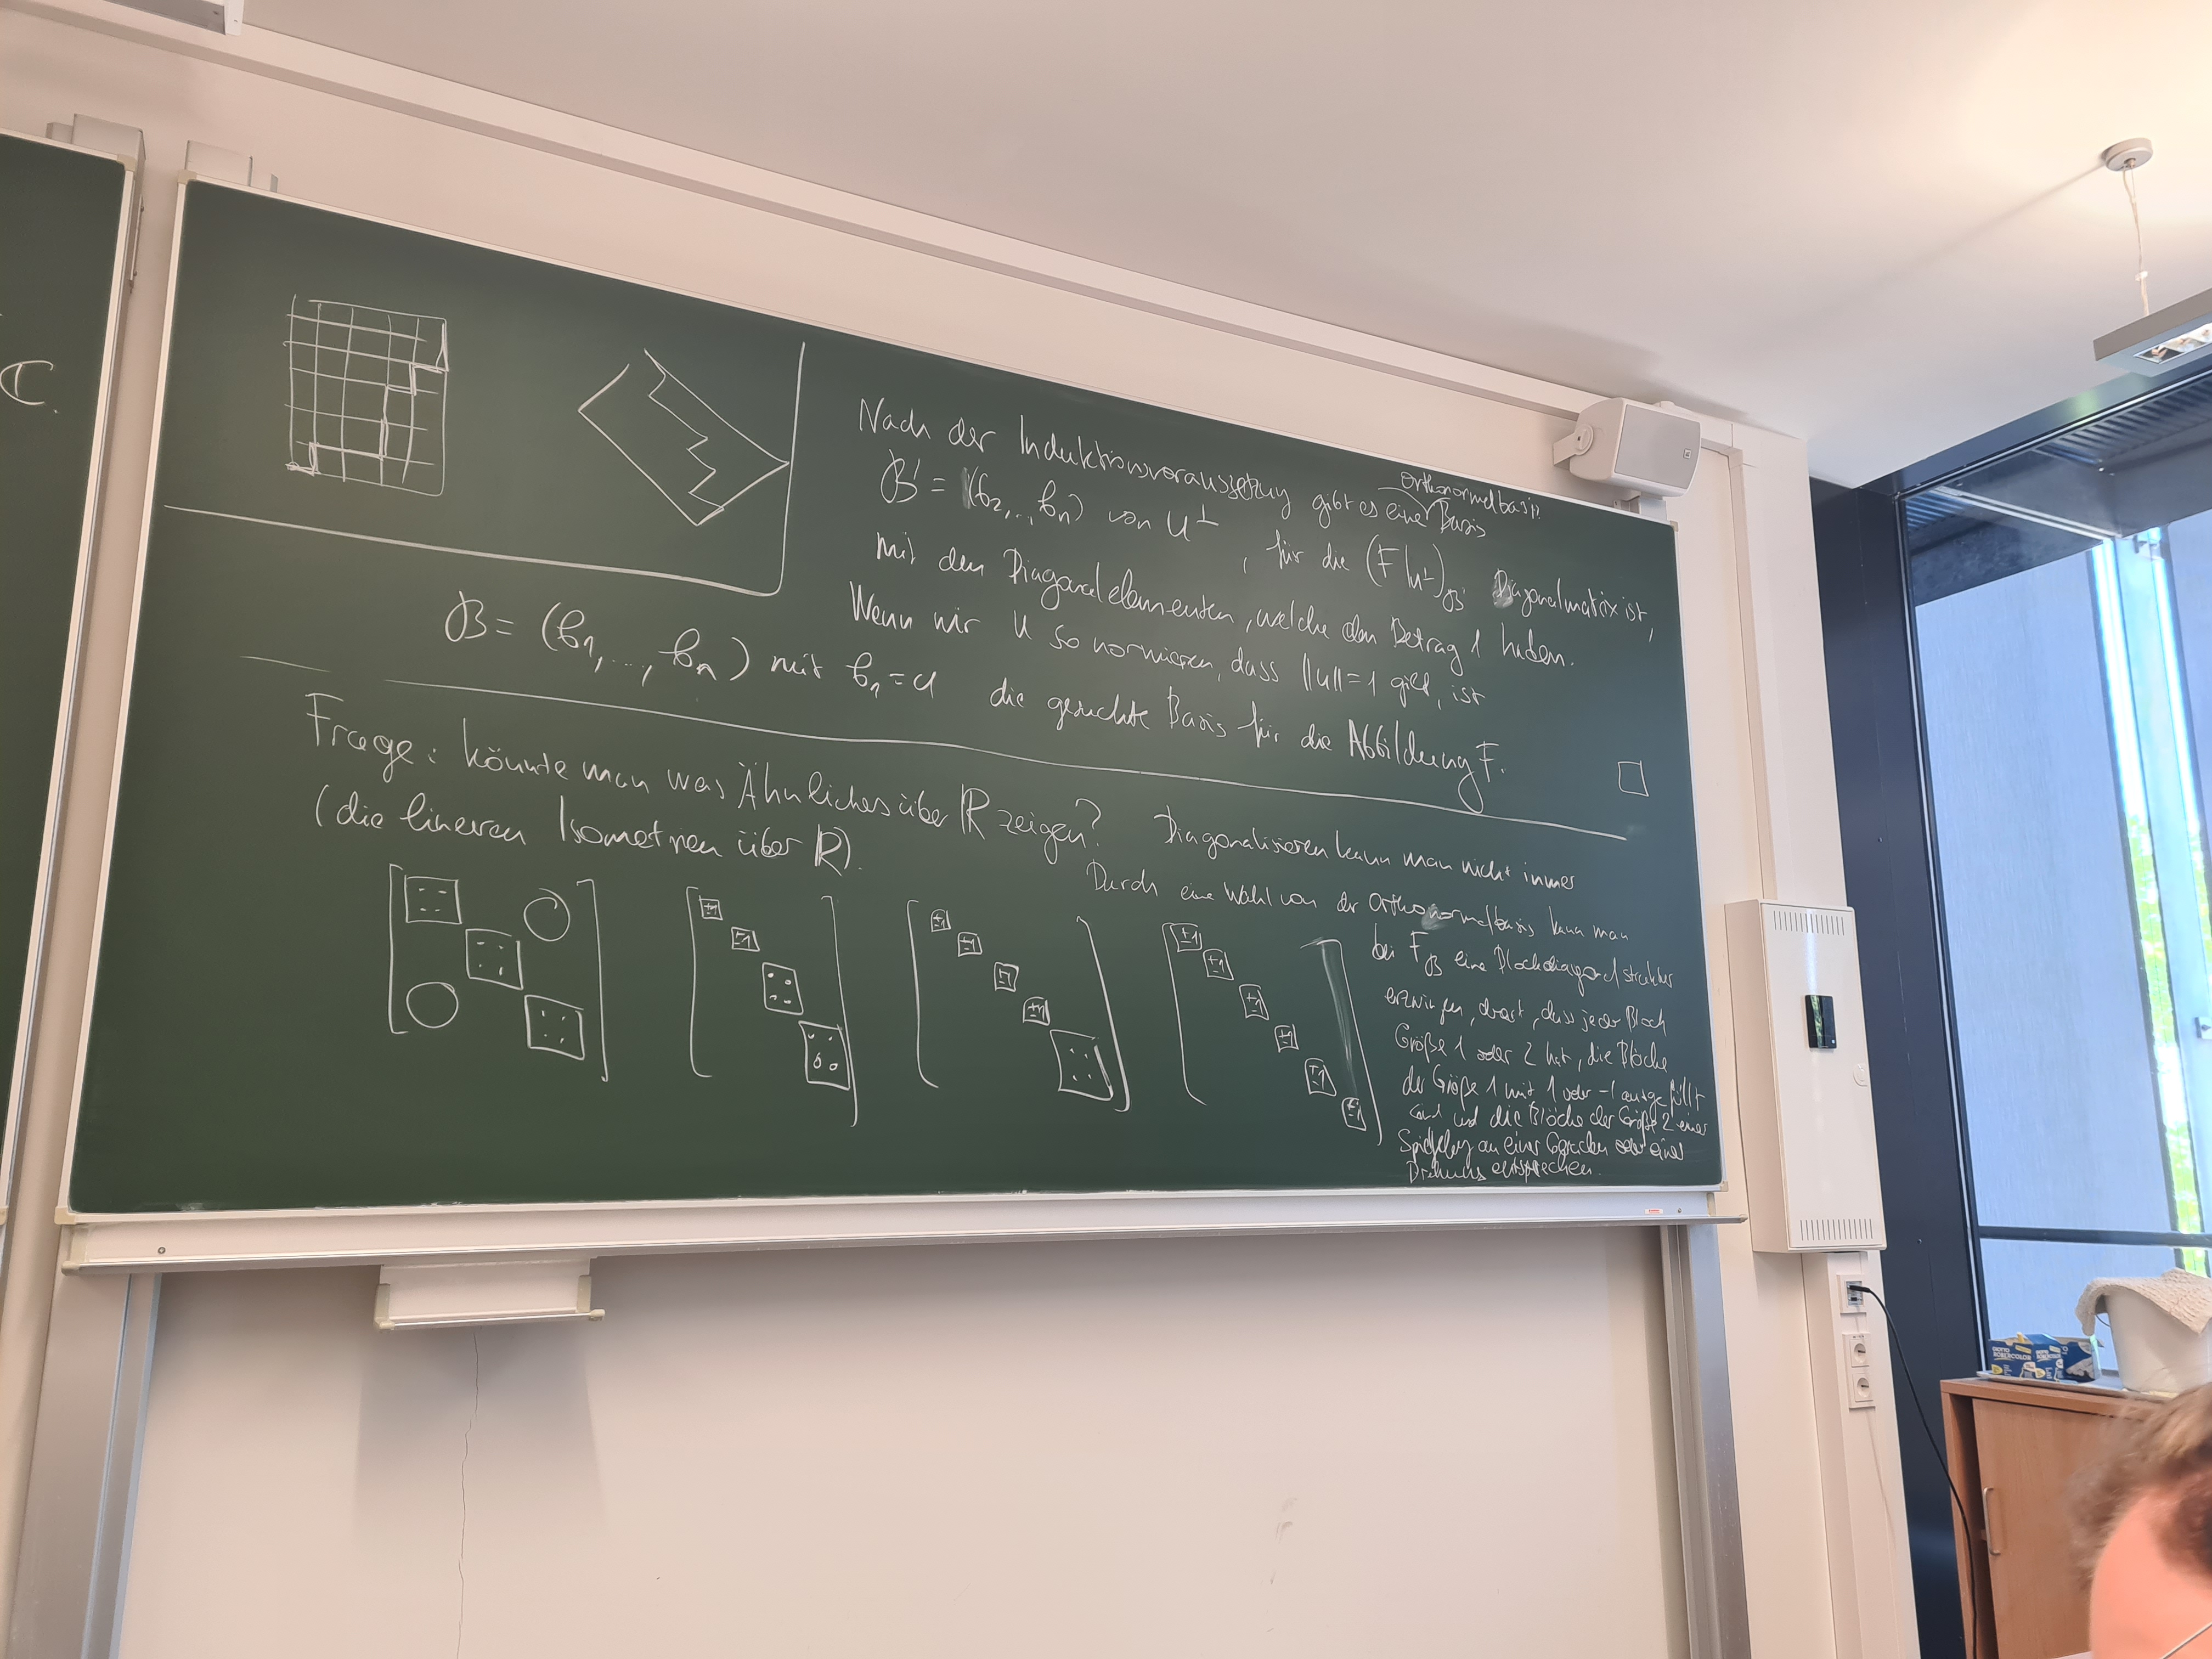 C.
Nach der Induktionsvoraussetzung gibt es eine Basis
Orthonormalbasis
B' = (b₂,..,bₙ) von U⊥, für die (F|U⊥)_B' Diagonalmatrix ist,
mit den Diagonalelementen, welche den Betrag 1 haben.
Wenn wir u so normieren, dass ||u||=1 gilt, ist
B = (b₁,...,bₙ) mit b₁=u die gesuchte Basis für die Abbildung F. □
Frage: könnte man was Ähnliches über ℝ zeigen?
(die lineren Isometrien über ℝ).
Diagonalisieren kann man nicht immer
Durch eine Wahl von der Orthonormalbasis kann man
bei F_B eine Blockdiagonalstruktur
erzwingen, derart, dass jeder Block
Größe 1 oder 2 hat, die Blöcke
der Größe 1 mit 1 oder -1 ausgefüllt
sind und die Blöcke der Größe 2 einer
Spiegelung an einer Geraden oder einer
Drehung entsprechen.
±1
±1
±1
±1
±1
±1
±1
±1
±1
±1
±1